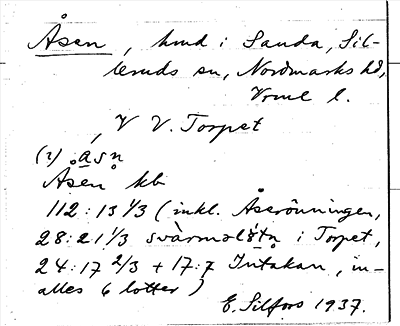 Åsen, hmd i Sanda, Sil-
leruds sn, Nordmarks hd,
Vrml l.
, V V. Torpet
(2) åsn
Åsen kb
112:13 1/3 (inkl. Åserönningen,
28:21 1/3 i Torpet,
24:17 2/3 + 17:7 Intakan, in-
alles 6 lotter)
E. Silfors 1937.